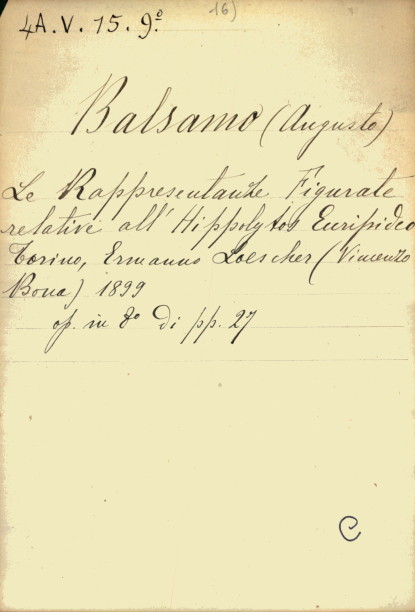 16)
4A.V.15.9º
Balsamo (Augusto)
Le Rappresentanze Figurate
relative all'Hippolytos Euripideo
Torino, Ermanno Loescher (Vincenzo
Bona) 1899
op. in 8º di pp. 27
C